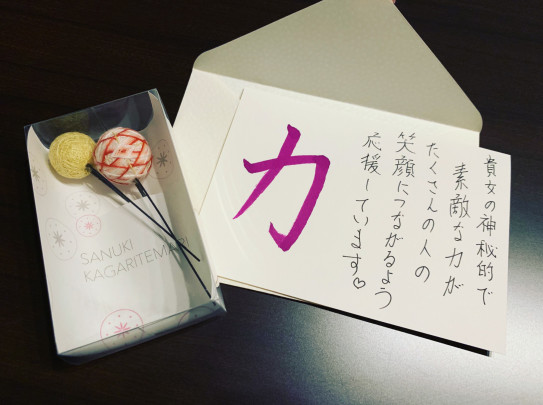 SANUKI
KAGARITEMARI
力
貴女の神秘的で
素敵な力が
たくさんの人の
笑顔につながるよう
応援しています♡